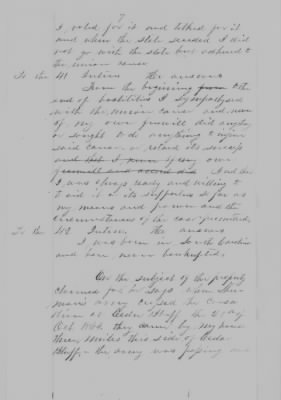 7
I voted for it and talked for it
and when the State seceded I did
not go with the state but adhered to
the union cause
To the 41 Inters the answers
From the beginning from to the
end of hostilities I sympathysed
with the union cause and never
of my own freewill did anything
or sought to do anything to injure
said cause or retard its success
and that I never of my own
freewill and accord did I and that
I was always ready and willing
to aid it or its supporters so far as
my means and power and the
circumstances of the case permitted
To the 42 Inters the answers
I was born in South Carolina
and have never bankrupted
On the subject of the property
claimed for he says when Sher
man's army crossed the Coosa
River at Ceder Bluff the day
Oct 1864 they came by my house
three miles this side of Ceder
Bluff the army was passing